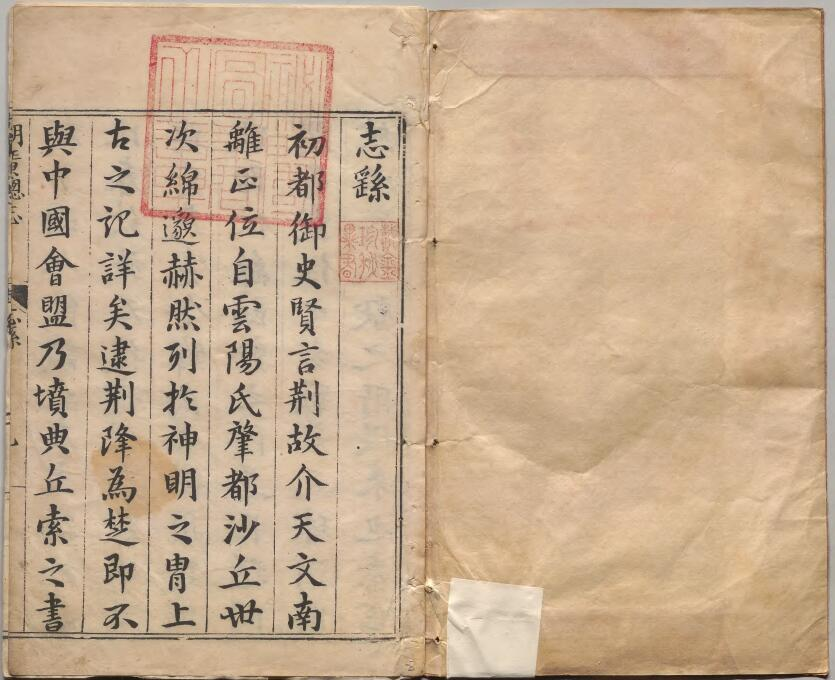 志繇
初都御史賢言荆故介天文南
離正位自雲陽氏肇都沙丘世
次綿邈赫然列於神明之胄上
古之記詳矣逮荆降為楚即不
與中國會盟乃墳典丘索之書